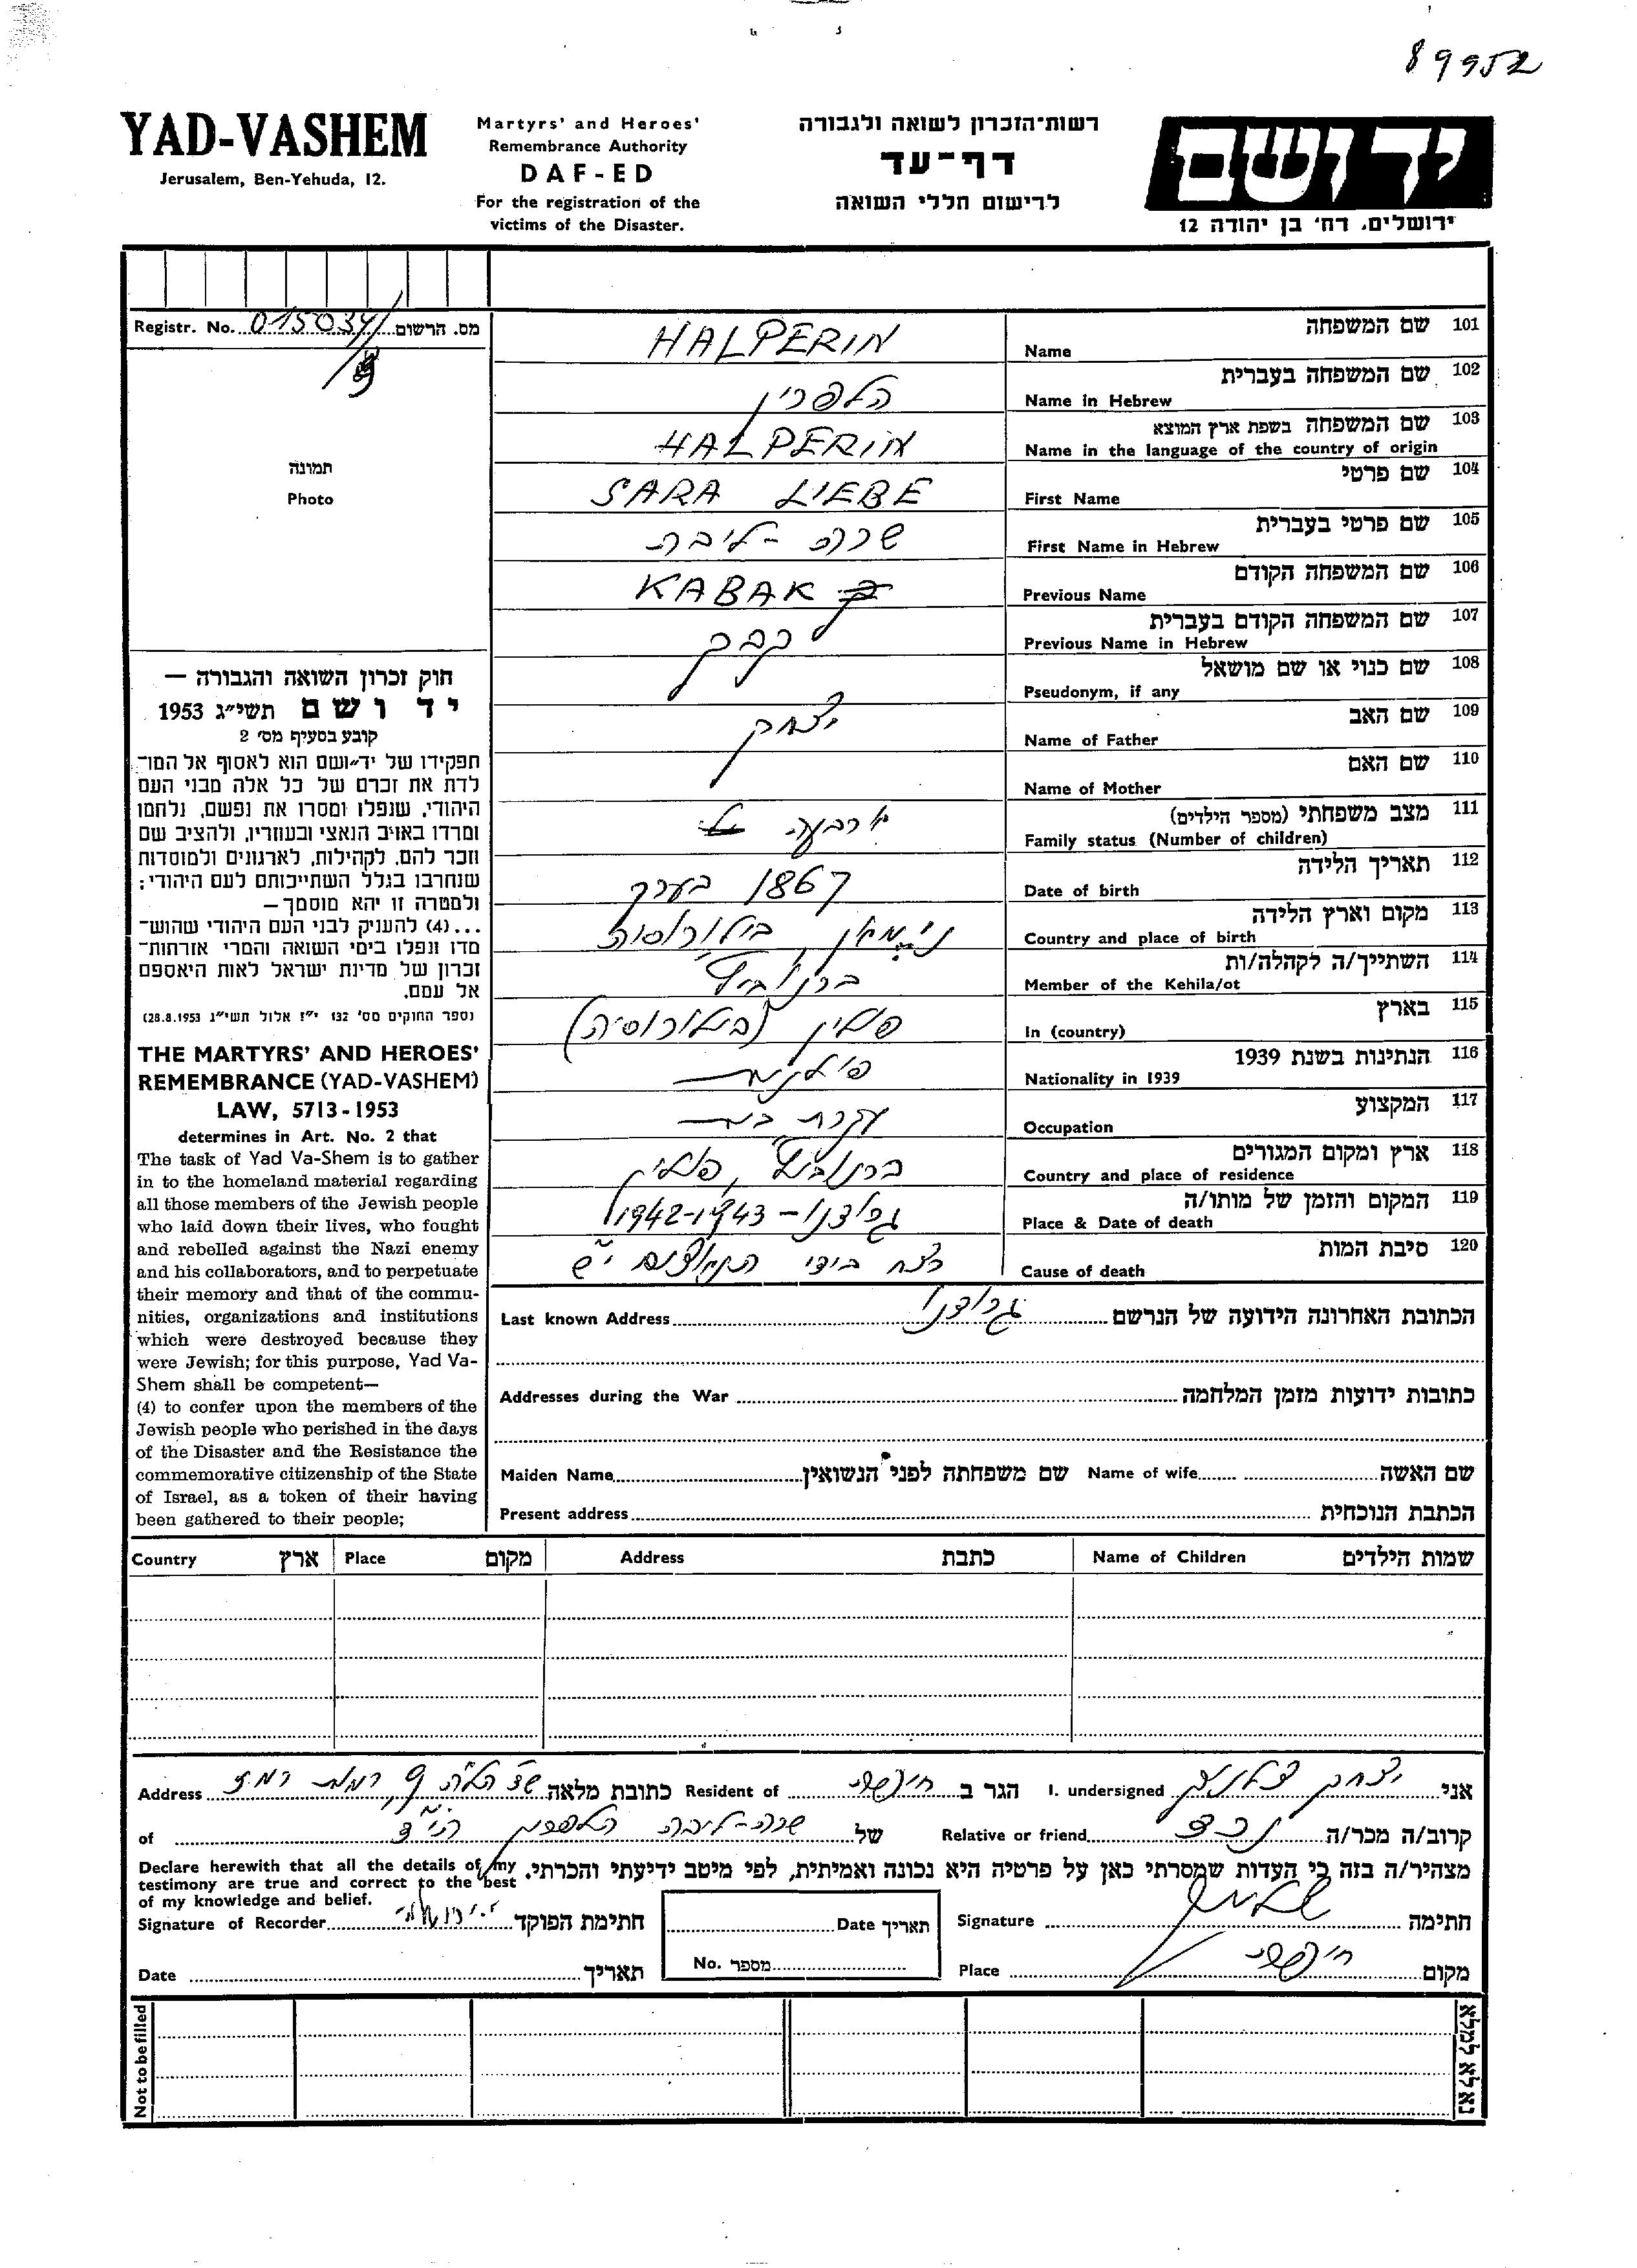 89952
YAD-VASHEM
Jerusalem, Ben-Yehuda, 12.
Martyrs' and Heroes'
Remembrance Authority
DAF-ED
For the registration of the
victims of the Disaster.
רשות־הזכרון לשואה ולגבורה
דף־עד
לרישום חללי השואה
יד ושם
ירושלים, רח' בן יהודה 12
Registr. No. 015034/ מס. הרשום
תמונה
Photo
101 שם המשפחה
Name HALPERIN
102 שם המשפחה בעברית
Name in Hebrew הלפרין
103 שם המשפחה בשפת ארץ המוצא
Name in the language of the country of origin HALPERIN
104 שם פרטי
First Name SARA LIEBE
105 שם פרטי בעברית
First Name in Hebrew שרה - ליבה
106 שם המשפחה הקודם
Previous Name KABAK
107 שם המשפחה הקודם בעברית
Previous Name in Hebrew קבק
108 שם כנוי או שם מושאל
Pseudonym, if any
109 שם האב
Name of Father יצחק
110 שם האם
Name of Mother
111 מצב משפחתי (מספר הילדים)
Family status (Number of children) ארבעה
112 תאריך הלידה
Date of birth 1867 בערך
113 מקום וארץ הלידה
Country and place of birth בילורוסיה
114 השתייך/ה לקהלה/ות
Member of the Kehila/ot
115 בארץ
In (country) פולין (בילורוסיה)
116 הנתינות בשנת 1939
Nationality in 1939 פולנית
117 המקצוע
Occupation עקרת בית
118 ארץ ומקום המגורים
Country and place of residence פולין
119 המקום והזמן של מותו/ה
Place & Date of death גרודנו - 1942-1943
120 סיבת המות
Cause of death
חוק זכרון השואה והגבורה —
יד ושם תשי״ג 1953
קובע בסעיף מס' 2
תפקידו של יד־ושם הוא לאסוף אל המו־
לדת את זכרם של כל אלה מבני העם
היהודי, שנפלו ומסרו את נפשם, נלחמו
ומרדו באויב הנאצי ובעוזריו, ולהציב שם
וזכר להם, לקהילות, לארגונים ולמוסדות
שנחרבו בגלל השתייכותם לעם היהודי;
ולמטרה זו יהא מוסמך—
...(4) להעניק לבני העם היהודי שהוש־
מדו ונפלו בימי השואה והמרי אזרחות־
זכרון של מדינת ישראל לאות היאספם
אל עמם.
(ספר החוקים מס' 132 י״ז אלול תשי״ג 28.8.1953)
THE MARTYRS' AND HEROES'
REMEMBRANCE (YAD-VASHEM)
LAW, 5713-1953
determines in Art. No. 2 that
The task of Yad Va-Shem is to gather
in to the homeland material regarding
all those members of the Jewish people
who laid down their lives, who fought
and rebelled against the Nazi enemy
and his collaborators, and to perpetuate
their memory and that of the commu-
nities, organizations and institutions
which were destroyed because they
were Jewish; for this purpose, Yad Va-
Shem shall be competent—
(4) to confer upon the members of the
Jewish people who perished in the days
of the Disaster and the Resistance the
commemorative citizenship of the State
of Israel, as a token of their having
been gathered to their people;
Last known Address גרודנו הכתובת האחרונה הידועה של הנרשם
Addresses during the War כתובות ידועות מזמן המלחמה
Maiden Name שם משפחתה לפני הנשואין Name of wife שם האשה
Present address הכתבת הנוכחית
Country ארץ Place מקום Address כתבת Name of Children שמות הילדים
אני יצחק I. undersigned הגר ב חיפה Resident of כתובת מלאה Address
קרוב/ה מכר/ה נכד Relative or friend של שרה-ליבה הלפרין הי״ד of
מצהיר/ה בזה כי העדות שמסרתי כאן על פרטיה היא נכונה ואמיתית, לפי מיטב ידיעתי והכרתי.
Declare herewith that all the details of my
testimony are true and correct to the best
of my knowledge and belief.
Signature of Recorder חתימת הפוקד Date תאריך Signature חתימה
Date תאריך No. מספר Place חיפה מקום
Not to be filled נא לא למלא